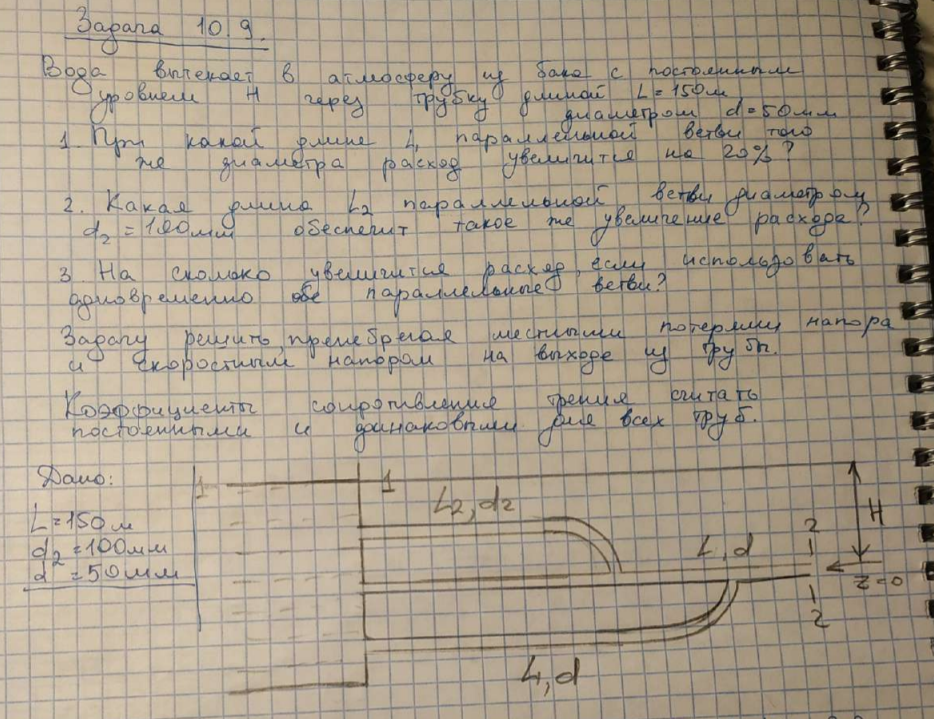 Задача 10.9.
Вода вытекает в атмосферу из бака с постоянным
уровнем H через трубку длиной L=150м,
диаметром d=50мм
1. При какой длине L₁ параллельной ветви того
же диаметра расход увеличится на 20%?
2. Какая длина L₂ параллельной ветви диаметром
d₂=100мм обеспечит такое же увеличение расхода?
3. На сколько увеличится расход, если использовать
одновременно обе параллельные ветви?
Задачу решить пренебрегая местными потерями напора
и скоростным напором на выходе из трубы.
Коэффициенты сопротивления трения считать
постоянными и одинаковыми для всех труб.
Дано:
L=150м
d₂=100мм
d=50мм
1 1
L₂, d₂
L, d
2
H
z=0
2
L₁, d